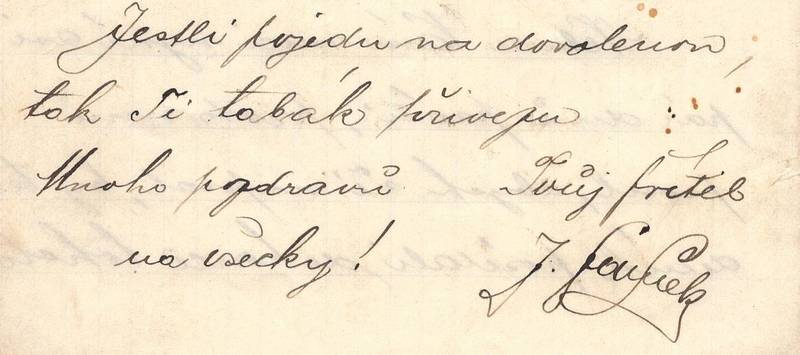 Jestli pojedu na dovolenou,
tak Ti tabák přivezu
Mnoho pozdravů Tvůj přítel
na všecky! J.